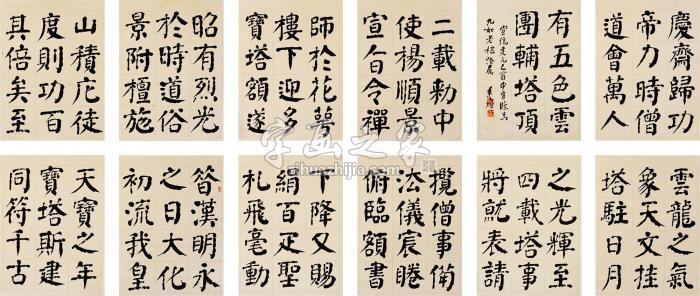 慶齋歸功
帝力時僧
道會萬人
有五色雲
團輔塔頂
宣統建元己酉中秋臨為
九如老棣
二載勅中
使楊順景
宣旨令禪
師於花萼
樓下迎多
寶塔額遂
昭有烈光
於時道俗
景附檀施
山積庀徒
度則功百
其倍矣至
雲龍之氣
象天文挂
塔駐日月
之光輝至
四載塔事
將就表請
攬僧事備
法儀宸睠
俯臨額書
下降又賜
絹百疋聖
札飛毫動
昝漢明永
之日大化
初流我皇
天寶之年
寶塔斯建
同符千古
字画之家
zihuazhijia.com